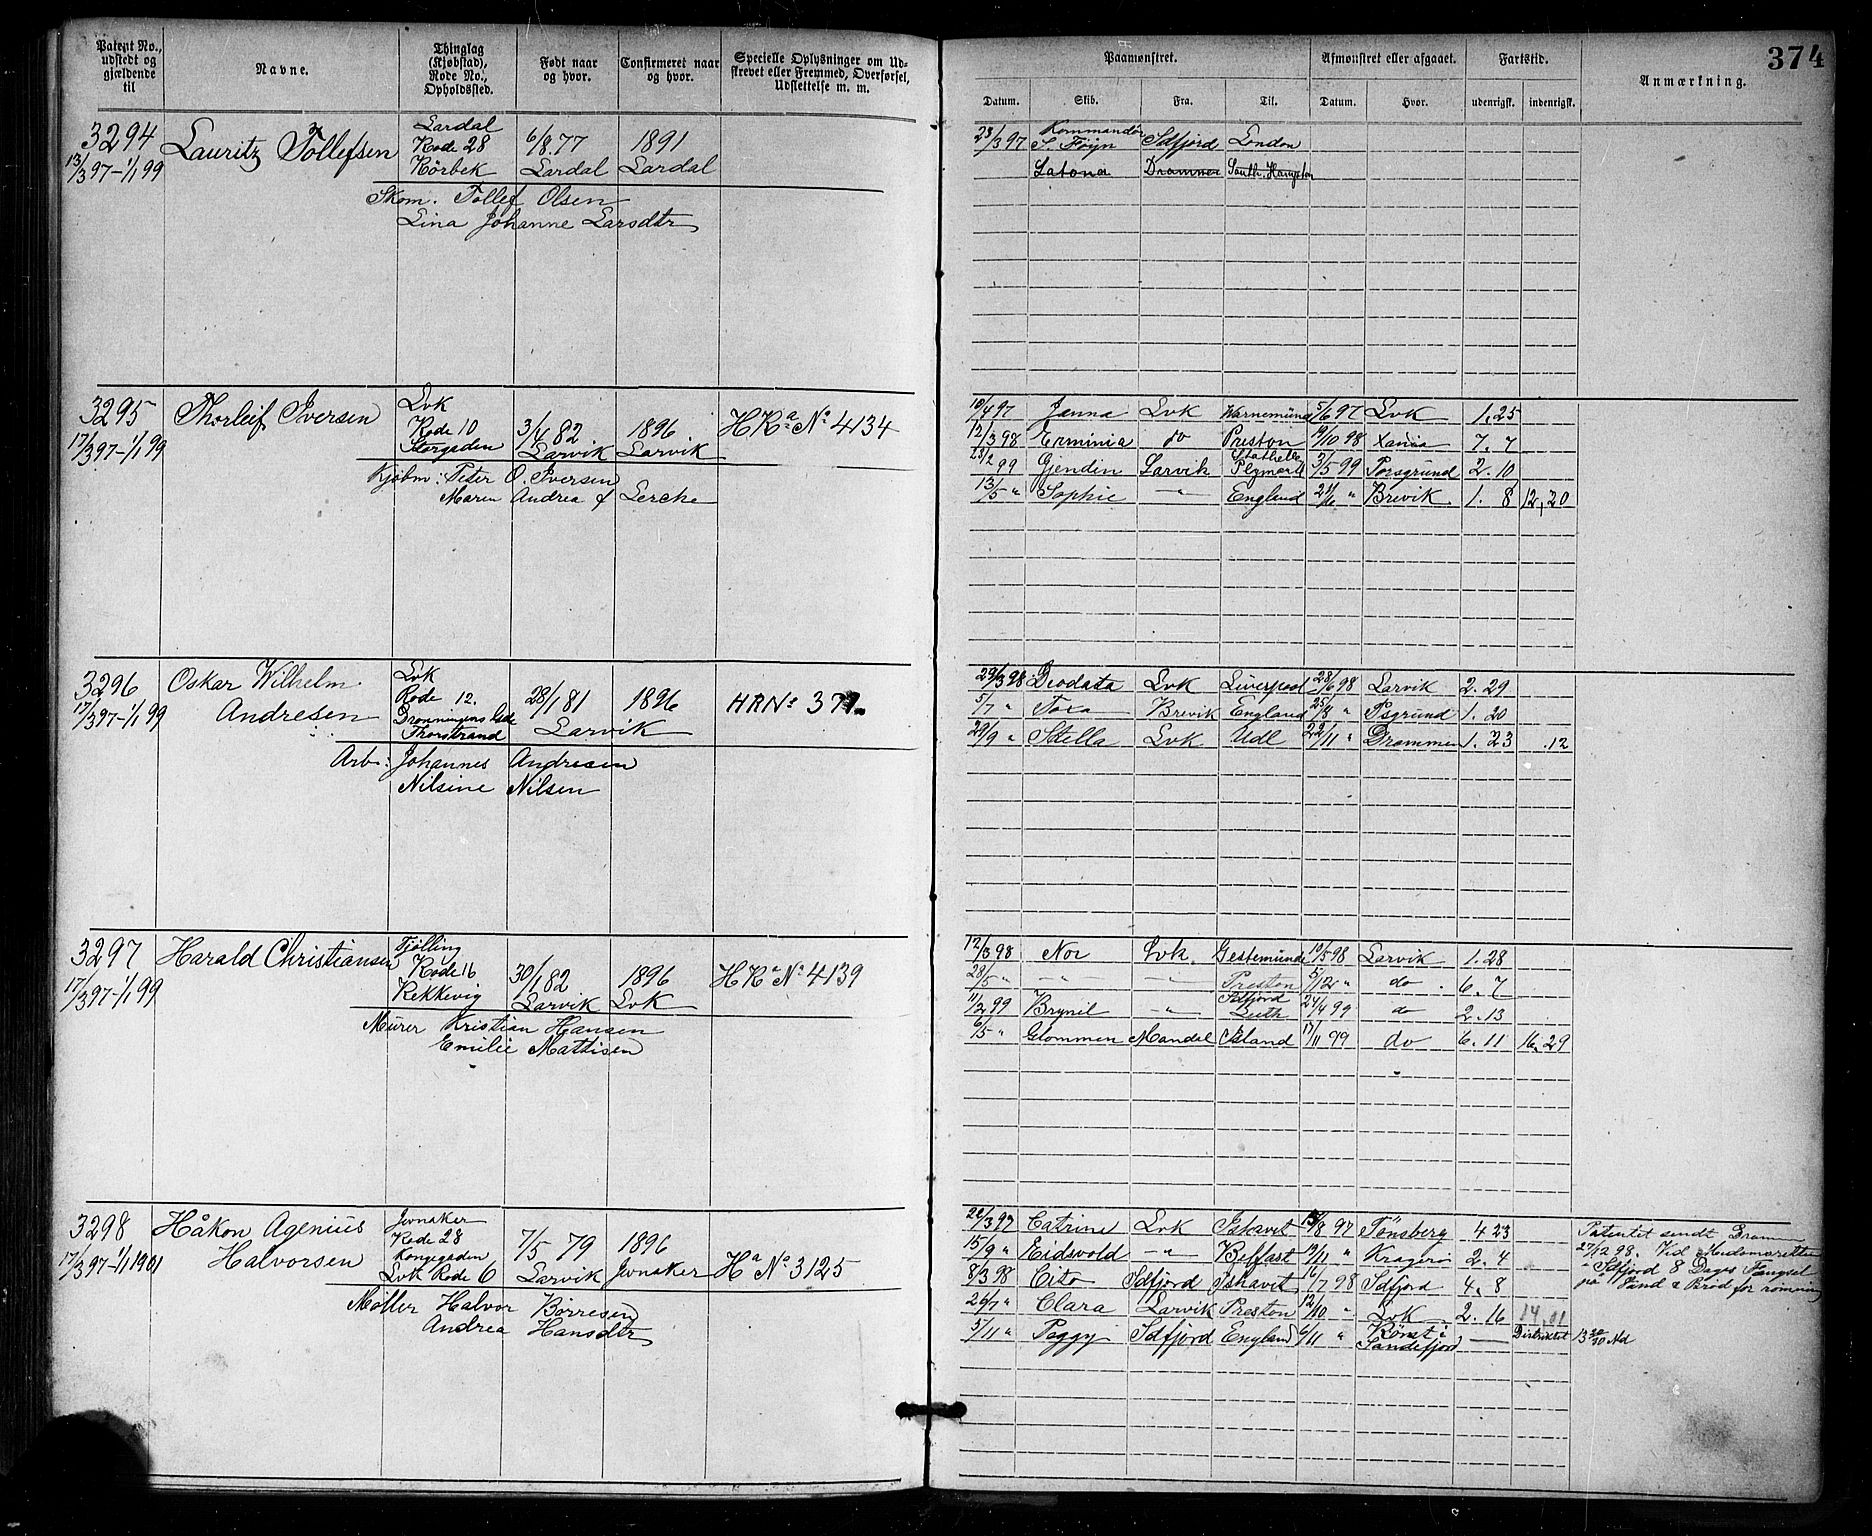 Patent No., udstedt og gjældende til
Navne.
Thinglag (Kjøbstad), Rode No., Opholdssted.
Født naar og hvor.
Confirmeret naar og hvor.
Specielle Oplysninger om Udskrevet eller Fremmed, Overførsel, Udslettelse m. m.
Paamønstret.
Afmønstret eller afgaaet.
Fartstid.
Anmærkning.
374
Datum. Skib. Fra. Til. Datum. Hvor. udenrigsk. indenrigsk.
3294
13/3 97-1/1 99
Lauritz Tollefsen
Lardal
Rode 28
Körbek
6/8. 77
Lardal
1891
Lardal
Skom. Tollef Olsen
Lina Johanne Larsdtr
23/3 97 Kommandör S. Föyn Sdfjord London
Latona Drammen South. Hampton
3295
17/3 97-1/1 99
Thorleif Iversen
Lvk
Rode 10
Storgaden
Larvik
1896
Larvik
HRa No 4134
Kjøbm: Peter O. Iversen
Maren Andrea f Lerche
10/4 97 Janna Lvk Warnemünde 5/6 97 Lvk 1. 25
12/3 98 Erminia do Preston 19/10 98 Xania 7. 7
23/2 99 Gjendin Larvik Stathelle Plymouth 3/5 99 Porsgrund 2. 10
13/5 " Sophie - " - England 21/6 " Brevik 1. 8 12, 20
3296
17/3 97-1/1 99
Oskar Wilhelm
Andresen
Lvk
Rode 12.
Dronningens Gde
Thorstrand
28/1 81
Larvik
1896
HRNo 371
Arb: Johannes Andresen
Nilsine Nilsen
29/3 98 Deodata Lvk Liverpool 28/6 98 Larvik 2. 29
5/7 " Fota Brevik England 25/8 " Psgrund 1. 20
29/9 " Stella Lvk Udl 22/11 " Drammen 1. 23 .12
3297
17/3 97-1/1 99
Harald Christiansen
Tjølling
Rode 16
Rekkevig
30/1 82
Larvik
1896
Lvk
HRa No 4139
Murer Kristian Hansen
Emilie Mathisen
12/3 98 Nor Lvk. Gestemünde 10/5 98 Larvik 1. 28
28/5 " - " - - " - Preston 5/12 " do. 6. 7
11/2 99 Brynil - " - Sdfjord Leith 24/4 99 do 2. 13
6/5 " Glommen Mandal Island 17/11 99 do 6. 11 16. 29
3298
17/3 97-1/1 1901
Håkon Agenius
Halvorsen
Jevnaker
Rode 28
Kongegaden
Lvk Rode 6
7/5 79
Larvik
1896
Jevnaker
Ha No 3125
Møller Halvor Börresen
Andrea Hansdtr
22/3 97 Catrine Lvk Ishavet 13/8 97 Tönsberg 4 23
15/9 " Eidsvold - " - Belfast 19/11 " Kragerö 2. 4
8/3 98 Cito Sdfjord Ishavet 16/7 98 Sdfjord 4. 8
26/7 " Clara Larvik Preston 12/10 " Lvk 2. 16 14, 01
5/11 " Peggy Sdfjord England 6/11 " Römt i Sandefjord — Distriktet 13 20/30 Nd
Patentet sendt Dramm
27/12 98. Vid Meddomsretten
i Sdfjord 8 Dages Fængsel
på Vand & Bröd for rømning